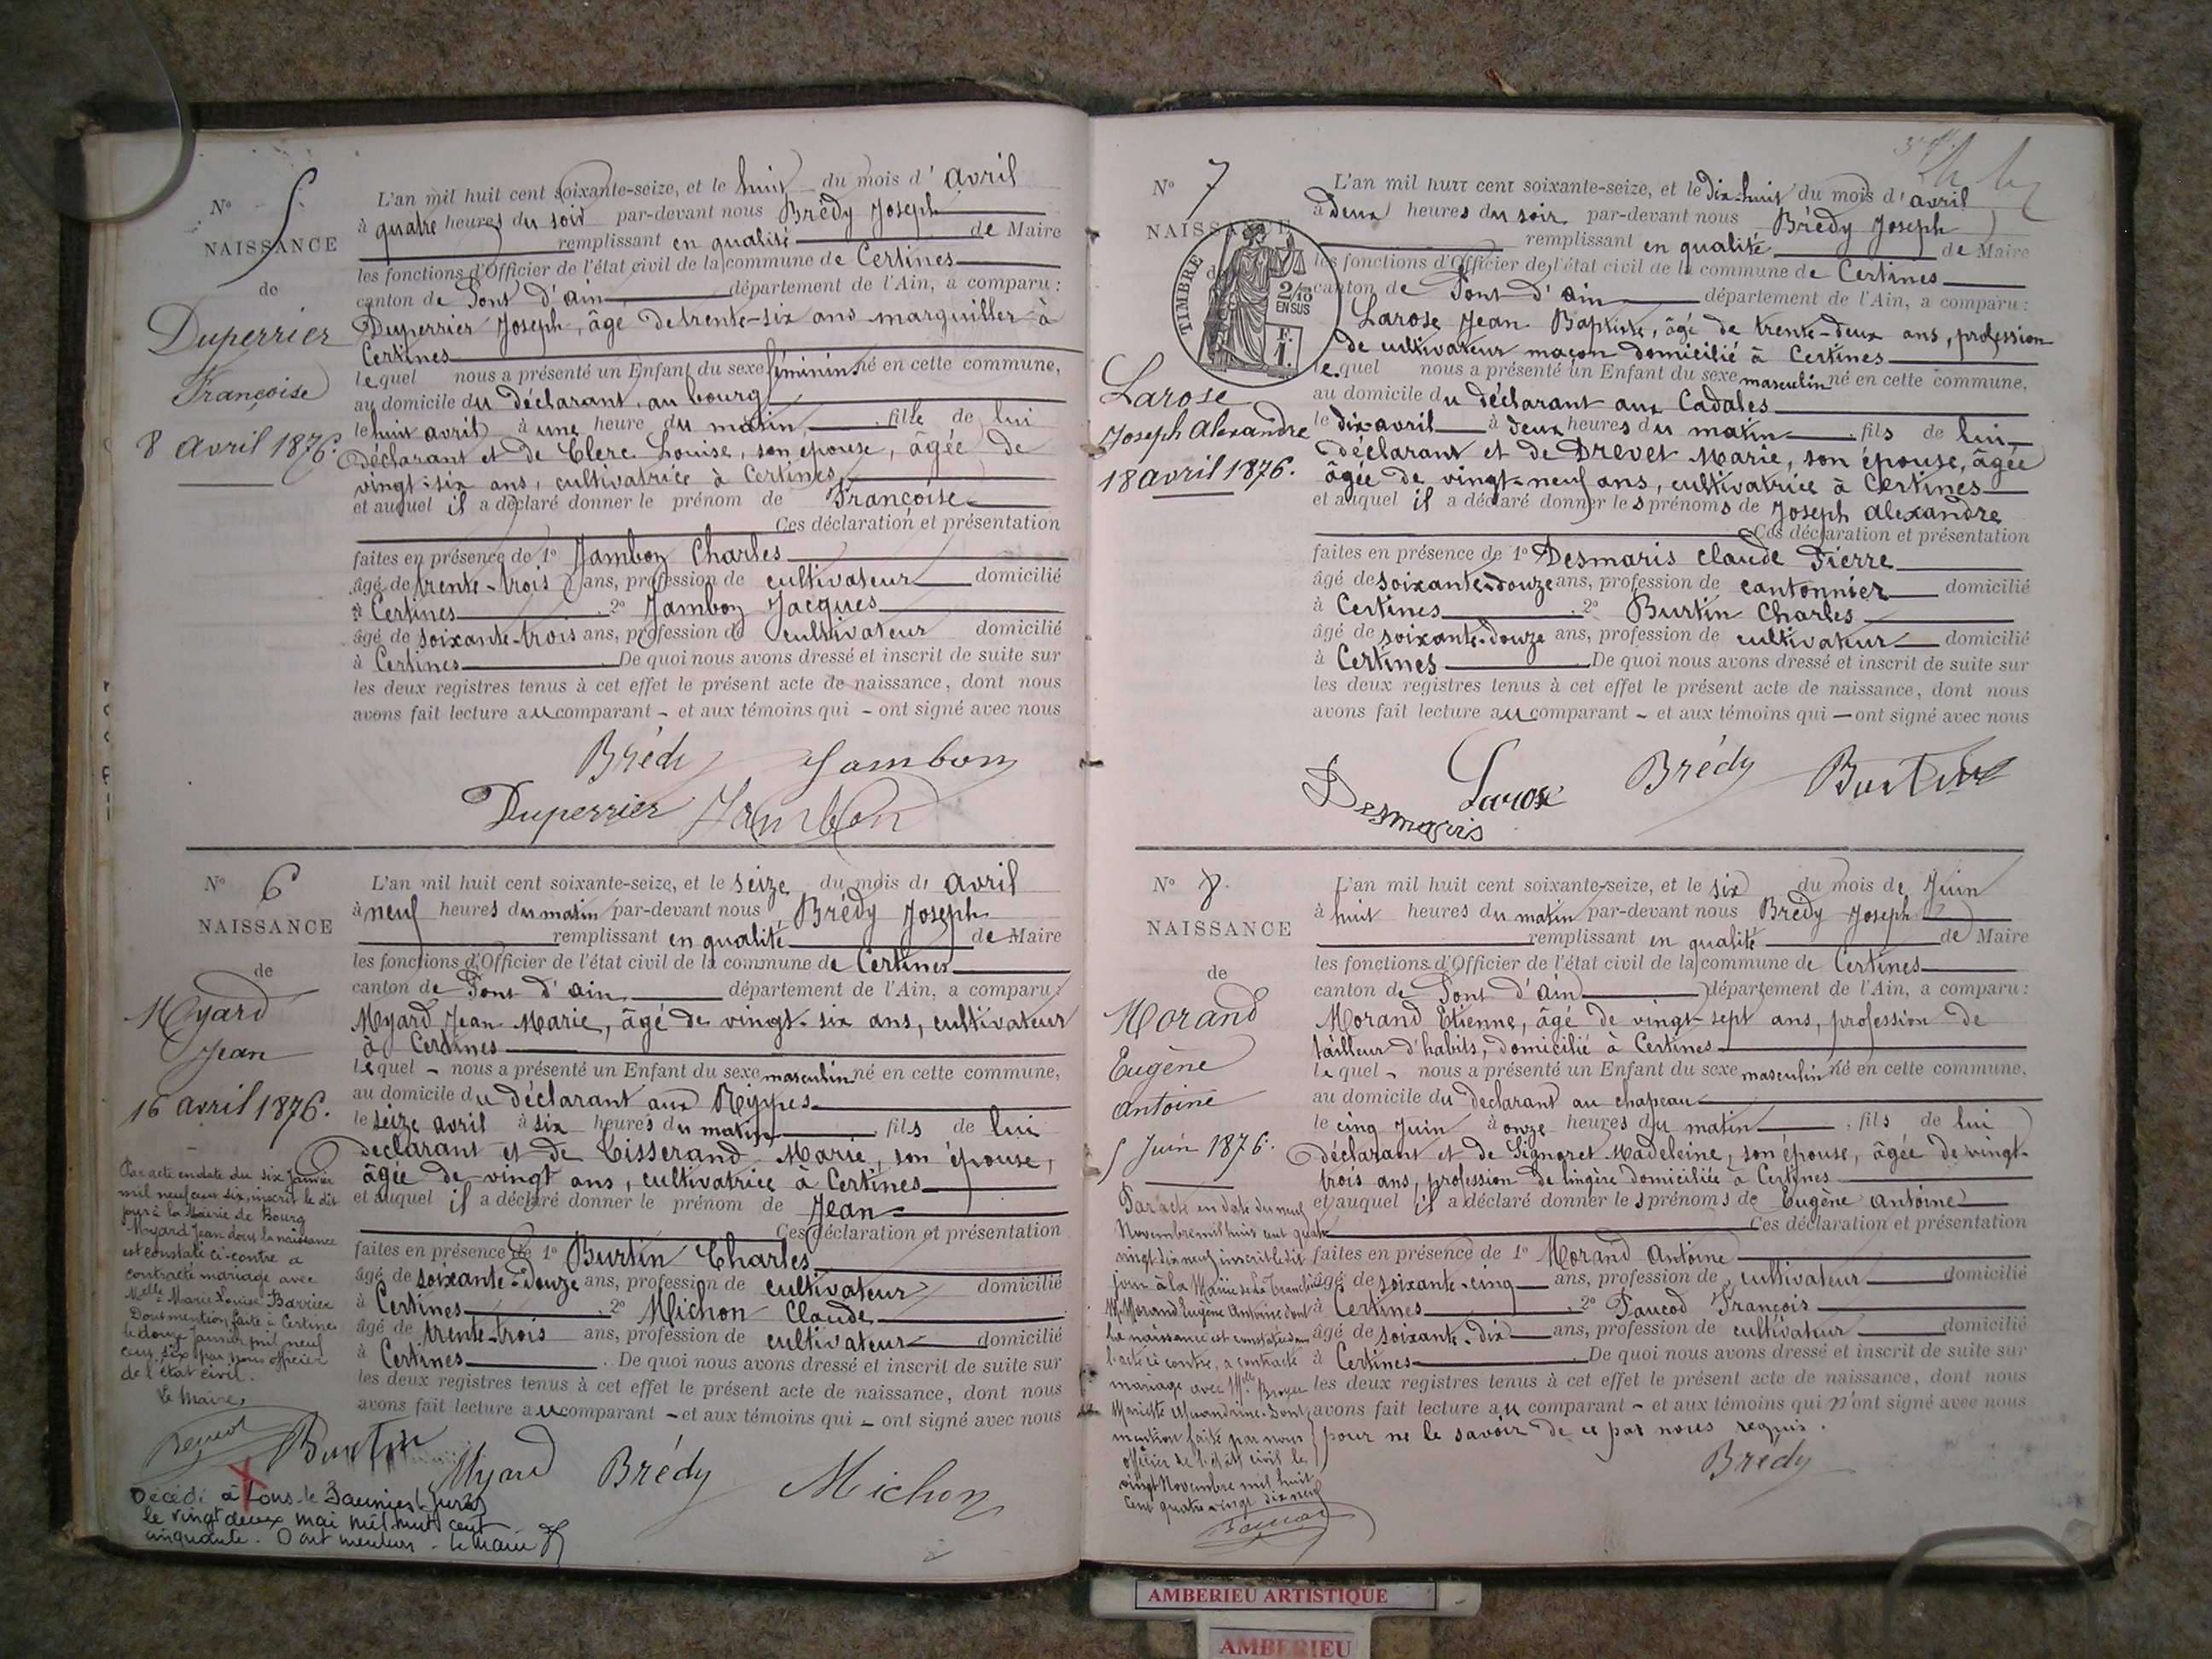 N° 5
NAISSANCE
de
Duperrier
Françoise
8 avril 1876.
L'an mil huit cent soixante-seize, et le huit du mois d'avril
à quatre heures du soir par-devant nous Brédy Joseph
remplissant en qualité de Maire
les fonctions d'Officier de l'état civil de la commune de Certines
canton de Pont d'ain département de l'Ain, a comparu :
Duperrier Joseph, âgé de trente-six ans marguiller à
Certines
lequel nous a présenté un Enfant du sexe féminin né en cette commune,
au domicile du déclarant, au bourg
le huit avril à une heure du matin, fille de lui
déclarant et de Clerc Louise, son épouse, âgée de
vingt-six ans, cultivatrice à Certines
et auquel il a déclaré donner le prénom de Françoise
Ces déclaration et présentation
faites en présence de 1° Jambon Charles
âgé de trente-trois ans, profession de cultivateur domicilié
à Certines. 2° Jambon Jacques
âgé de soixante-trois ans, profession de cultivateur domicilié
à Certines De quoi nous avons dressé et inscrit de suite sur
les deux registres tenus à cet effet le présent acte de naissance, dont nous
avons fait lecture au comparant - et aux témoins qui - ont signé avec nous
Brédy Jambon
Duperrier Jambon
N° 6
NAISSANCE
de
Myard
Jean
16 avril 1876.
Par acte en date du six Janvier
mil neuf cent six, inscrit le dit
jour à la Mairie de Bourg
Myard Jean dont la naissance
est constatée ci-contre a
contracté mariage avec
Melle Marie Louise Barrier
Dont mention faite à Certines
le douze Janvier mil neuf
cent six par nous officier
de l'état civil.
Le Maire,
L'an mil huit cent soixante-seize, et le seize du mois d'avril
à neuf heures du matin par-devant nous Brédy Joseph
remplissant en qualité de Maire
les fonctions d'Officier de l'état civil de la commune de Certines
canton de Pont d'ain département de l'Ain, a comparu :
Myard Jean Marie, âgé de vingt-six ans, cultivateur
à Certines
lequel - nous a présenté un Enfant du sexe masculin né en cette commune,
au domicile du déclarant aux Rippes
le seize avril à six heures du matin fils de lui
déclarant et de Tisserand Marie, son épouse,
âgée de vingt ans, cultivatrice à Certines
et auquel il a déclaré donner le prénom de Jean
Ces déclaration et présentation
faites en présence de 1° Burtin Charles
âgé de soixante-douze ans, profession de cultivateur domicilié
à Certines. 2° Michon Claude
âgé de trente-trois ans, profession de cultivateur domicilié
à Certines. De quoi nous avons dressé et inscrit de suite sur
les deux registres tenus à cet effet le présent acte de naissance, dont nous
avons fait lecture au comparant - et aux témoins qui - ont signé avec nous
Burtin Myard Brédy Michon
Décédé à Lons-le Saunier (Jura)
le vingt deux mai mil neuf cent
cinquante. Dont mention. Le Maire
N° 7
NAISSANCE
de
TIMBRE
2/10
EN SUS
F.
1.
Larose
Joseph alexandre
18 avril 1876.
L'an mil huit cent soixante-seize, et le dix-huit du mois d'avril
à deux heures du soir par-devant nous Brédy Joseph
remplissant en qualité de Maire
les fonctions d'Officier de l'état civil de la commune de Certines
canton de Pont d'ain département de l'Ain, a comparu :
Larose Jean Baptiste, âgé de trente-deux ans, profession
de cultivateur maçon domicilié à Certines
lequel nous a présenté un Enfant du sexe masculin né en cette commune,
au domicile du déclarant aux Cadales
le dix avril à deux heures du matin. fils de lui
déclarant et de Drevet Marie, son épouse, âgée
âgée de vingt-neuf ans, cultivatrice à Certines
et auquel il a déclaré donner les prénoms de Joseph alexandre
Ces déclaration et présentation
faites en présence de 1° Desmaris Claude Pierre
âgé de soixante-douze ans, profession de cantonnier domicilié
à Certines. 2° Burtin Charles
âgé de soixante-douze ans, profession de cultivateur domicilié
à Certines De quoi nous avons dressé et inscrit de suite sur
les deux registres tenus à cet effet le présent acte de naissance, dont nous
avons fait lecture au comparant - et aux témoins qui - ont signé avec nous
Desmaris Larose Brédy Burtin
N° 8.
NAISSANCE
de
Morand
Eugène
antoine
5 Juin 1876.
Par acte en date du neuf
Novembre mil huit cent quatre
vingt dix neuf inscrit le dit
jour à la Mairie de la Tranclière
M. Morand Eugène Antoine dont
la naissance est constatée en
l'acte ci contre, a contracté
mariage avec Melle
Mariette Dont
mention faite par nous
officier de l'état civil le
vingt Novembre mil huit
cent quatre vingt dix neuf
L'an mil huit cent soixante-seize, et le six du mois de Juin
à huit heures du matin par-devant nous Brédy Joseph
remplissant en qualité de Maire
les fonctions d'Officier de l'état civil de la commune de Certines
canton de Pont d'ain département de l'Ain, a comparu :
Morand Etienne, âgé de vingt-sept ans, profession de
tailleur d'habits, domicilié à Certines
lequel - nous a présenté un Enfant du sexe masculin né en cette commune,
au domicile du déclarant au chapeau
le cinq Juin à onze heures du matin. fils de lui
déclarant et de Lignoret Madeleine, son épouse, âgée de vingt-
trois ans, profession de lingère domiciliée à Certines
et auquel il a déclaré donner les prénoms de Eugène antoine
Ces déclaration et présentation
faites en présence de 1° Morand Antoine
âgé de soixante-cinq ans, profession de cultivateur domicilié
à Certines 2° Paucod François
âgé de soixante-dix ans, profession de cultivateur domicilié
à Certines De quoi nous avons dressé et inscrit de suite sur
les deux registres tenus à cet effet le présent acte de naissance, dont nous
avons fait lecture au comparant - et aux témoins qui n'ont signé avec nous
pour ne le savoir de ce par nous requis.
Brédy
AMBERIEU ARTISTIQUE
AMBERIEU